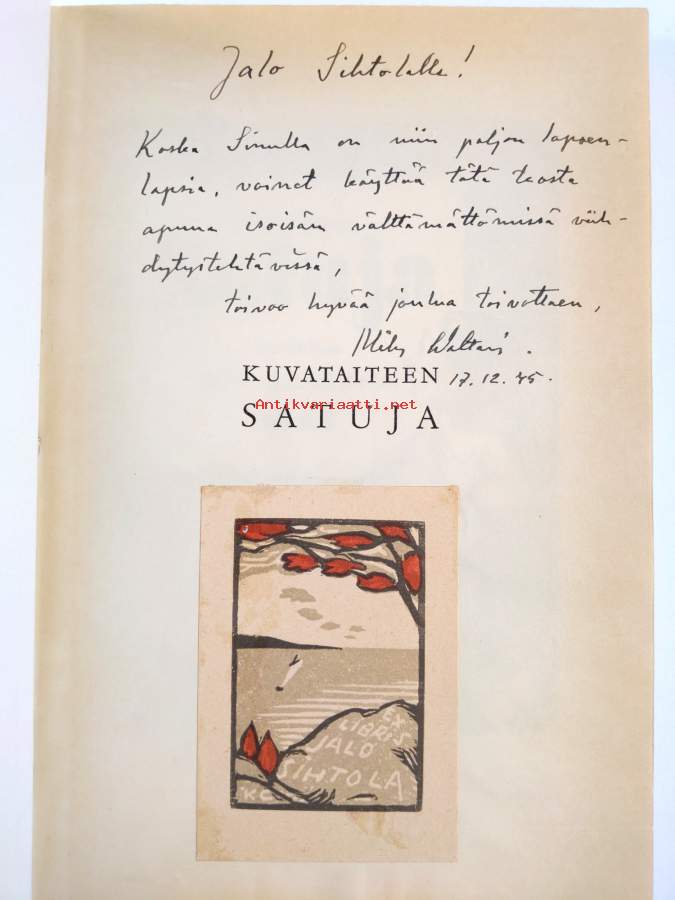 Jalo Sihtolalle!
Koska Sinulla on niin paljon lapsen-
lapsia, voinet käyttää tätä teosta
apuna isoisän välttämättömissä viih-
dytystehtävissä,
toivoo hyvää joulua toivottaen,
Mika Waltari.
KUVATAITEEN 17.12.45.
Antikvariaatti.net
SATUJA
EX
LIBRIS
JALO
SIHTOLA
KC